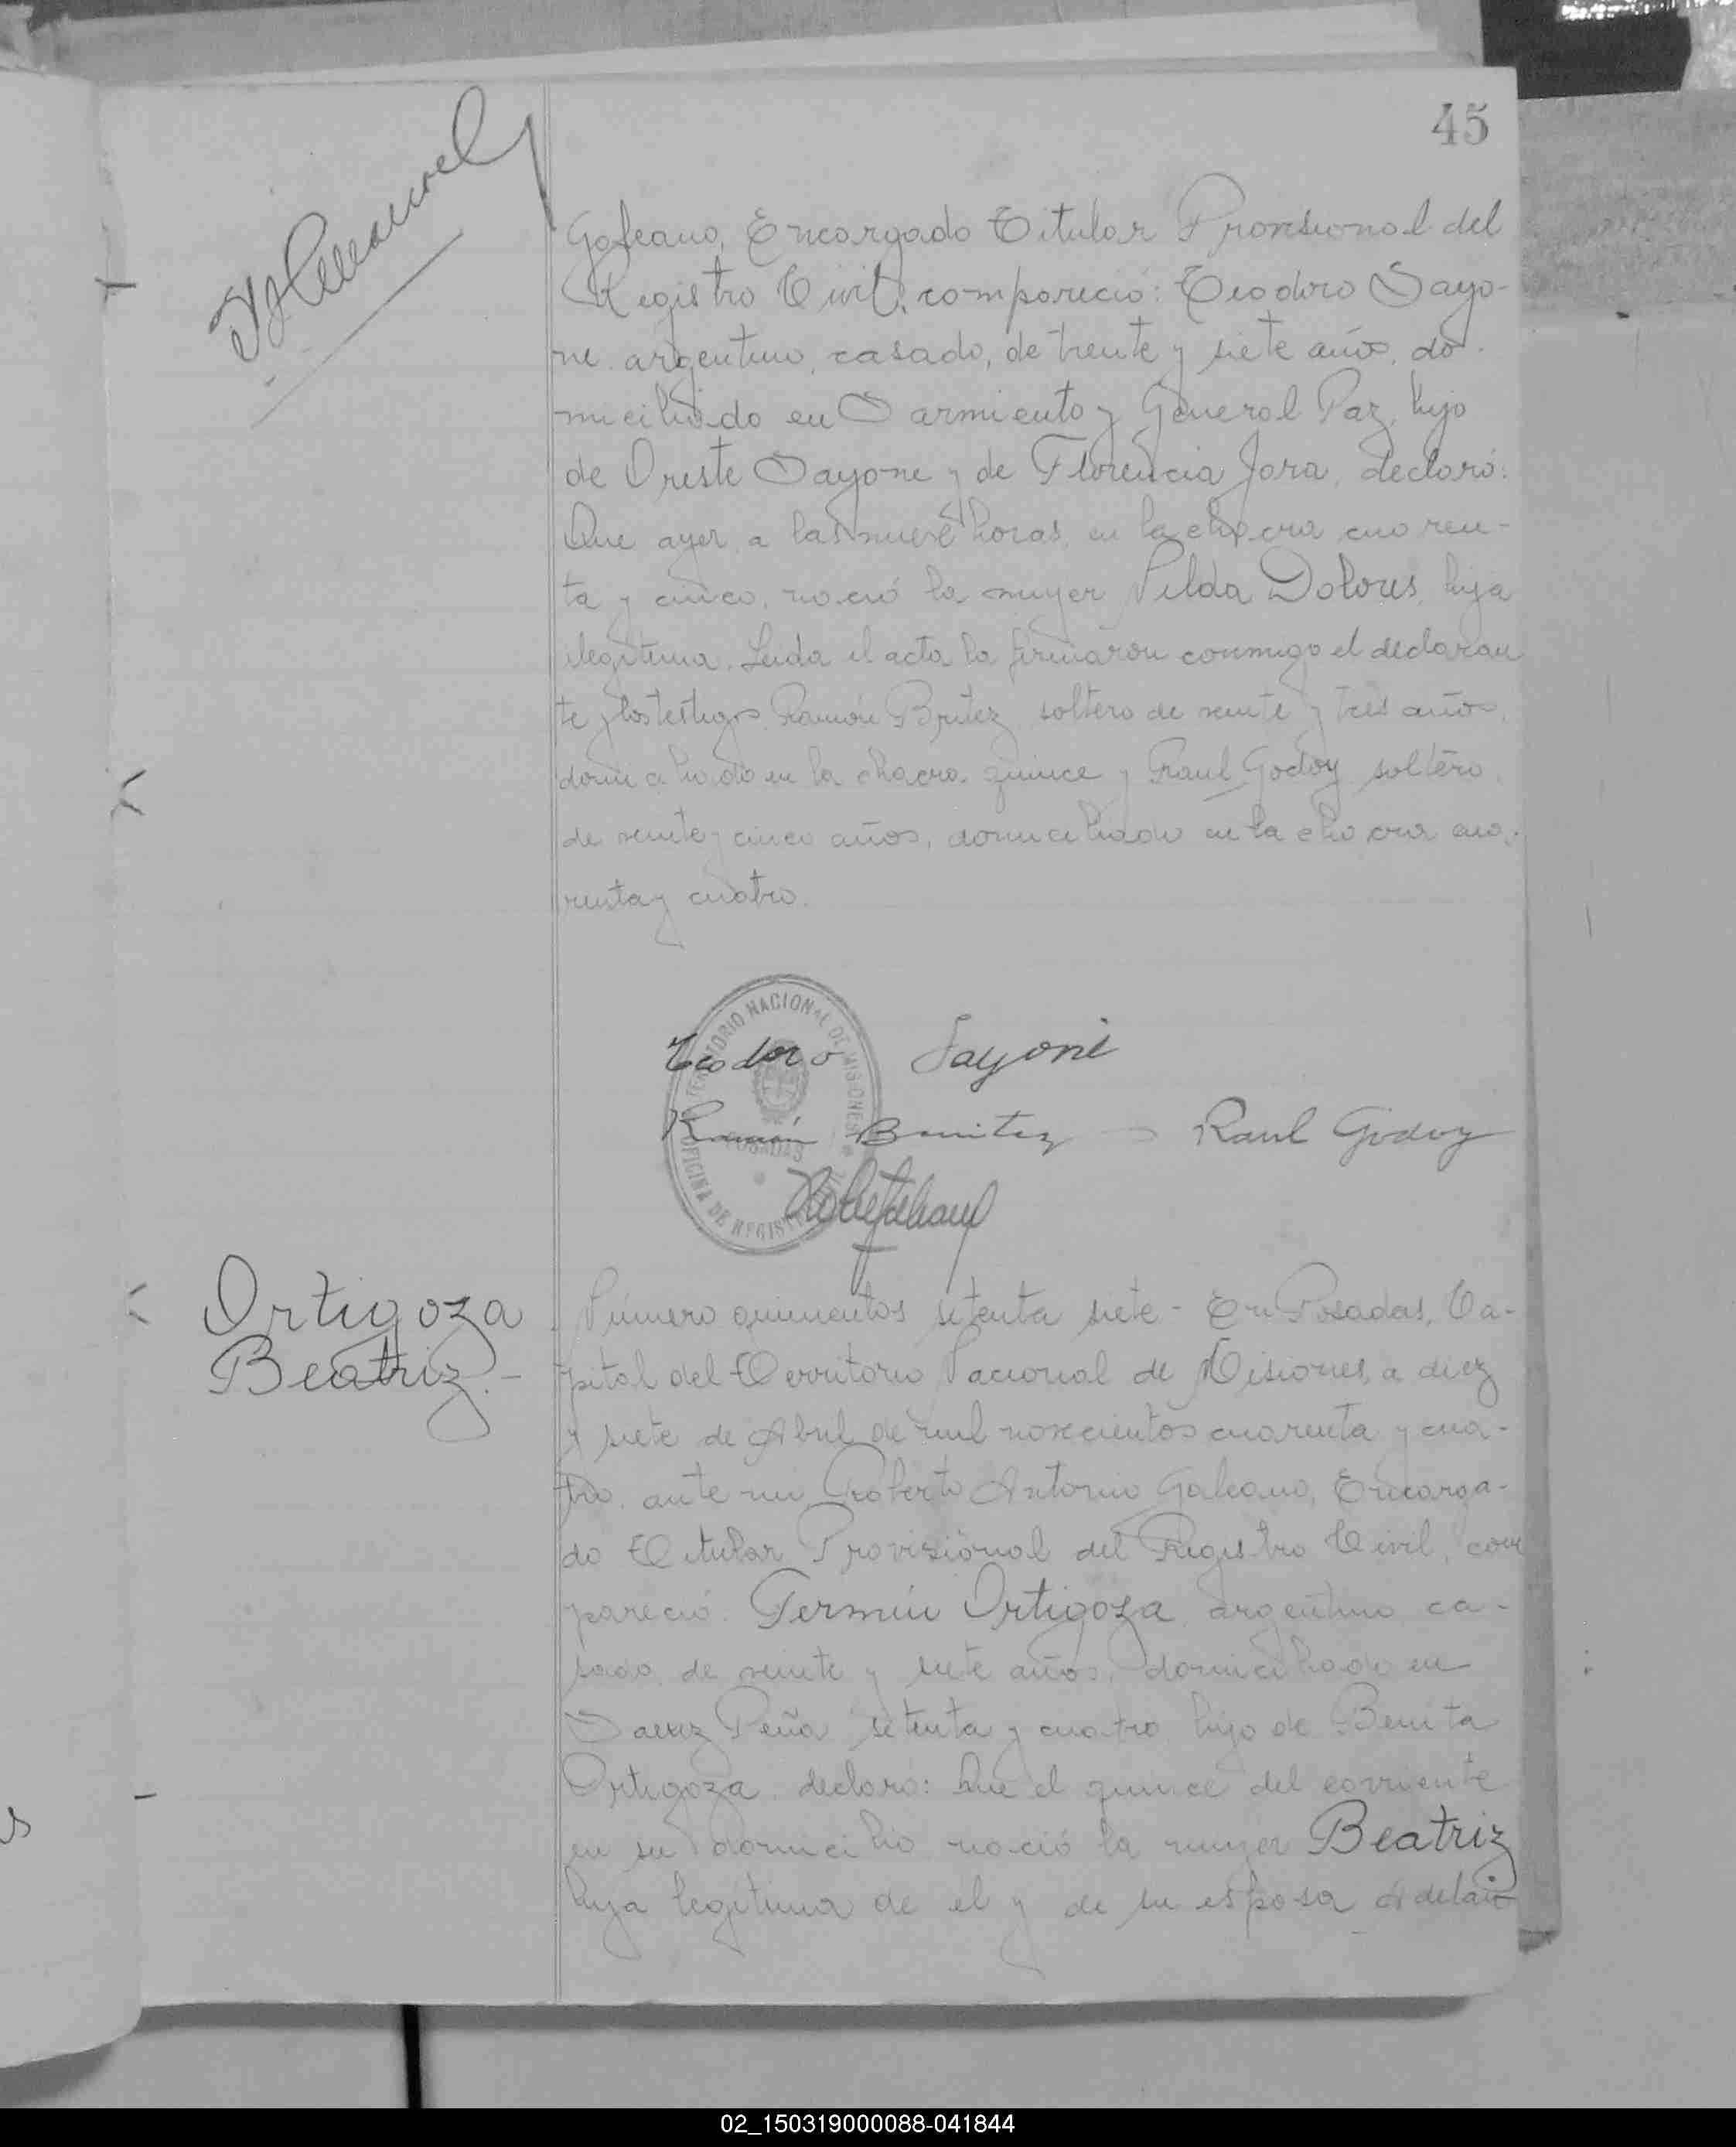 45
Galeano, Encargado Titular Provisional del
Registro Civil, compareció: Teodoro Sayo-
ne argentino, casado, de treinta y siete años, do-
miciliado en Sarmiento y General Paz, hijo
de Oreste Sayone y de Florencia Jara, declaró:
Que ayer a las nueve horas, en la chacra cuaren-
ta y cinco, nació la mujer Nilda Dolores, hija
ilegítima. Leida el acta la firmaron conmigo el declaran
te y los testigos Ramón Britez soltero de veinte y tres años,
domiciliado en la chacra quince y Raul Godoy soltero,
de veinte y cinco años, domiciliado en la chacra cua-
renta y cuatro.
TERRITORIO NACIONAL DE MISIONES
OFICINA DE REGISTRO
POSADAS
Teodoro Sayoné
Ramón Benitez - Raul Godoy
Ortigoza
Beatriz.-
Número quinientos setenta siete - En Posadas, Ca-
pital del Territorio Nacional de Misiones, a diez
y siete de Abril de mil novecientos cuarenta y cua-
tro, ante mi Roberto Antonio Galeano, Encarga-
do Titular Provisional del Registro Civil, com
pareció Fermín Ortigoza argentino ca-
sado de veinte y siete años, domiciliado en
Saenz Peña setenta y cuatro hijo de Benita
Ortigoza declaró: Que el quince del corriente
en su domicilio nació la mujer Beatriz
hija legítima de el y de su esposa
02_150319000088-041844